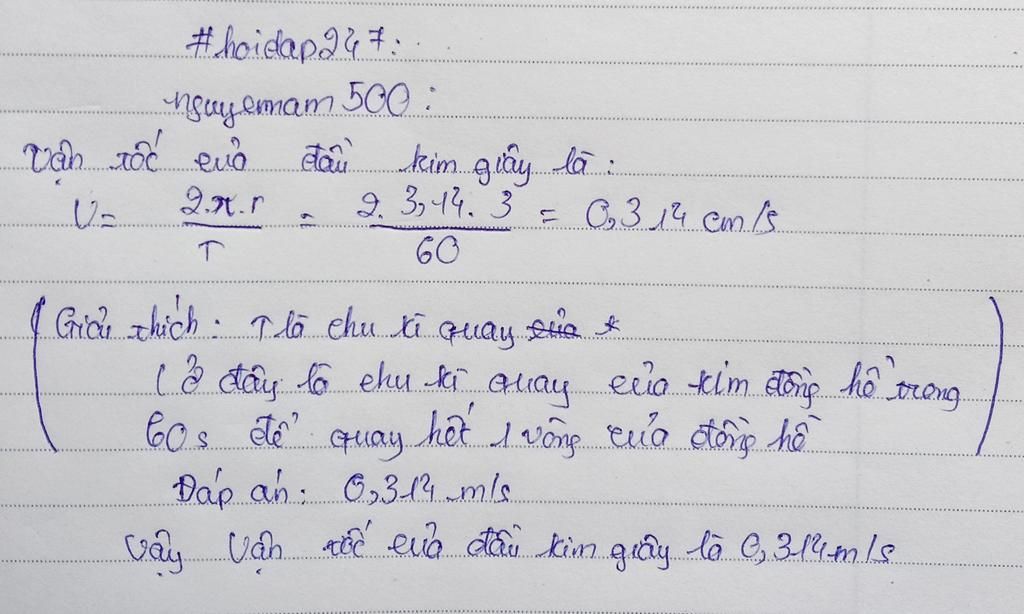 #hoidap247:
nguyennam500:
Vận tốc của đầu kim giây là:
V = 2.π.r / T = 2. 3,14. 3 / 60 = 0,314 cm/s
(Giải thích: T là chu kì quay của *
(ở đây là chu kì quay của kim đồng hồ trong
60s để quay hết 1 vòng của đồng hồ)
Đáp án: 0,314 m/s
Vậy vận tốc của đầu kim giây là 0,314 m/s